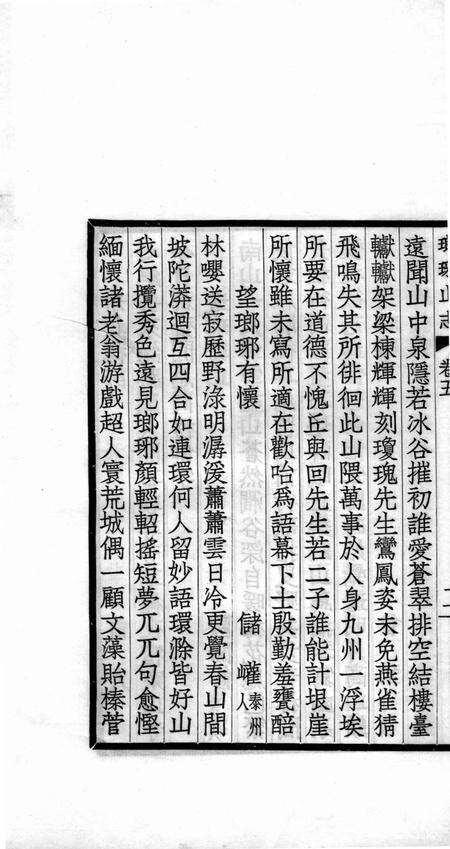 山志 卷五
遠聞山中泉隱若冰谷摧初誰愛蒼翠排空結樓臺
架梁棟輝輝刻瓊瑰先生鸞鳳姿未免燕雀猜
飛鳴失其所徘徊此山隈萬事於人身九州一浮埃
所要在道德不愧丘與回先生若二子誰能計垠崖
所懷雖未寫所適在歡咍爲語幕下士殷勤羞甕醅
望瑯琊有懷 儲巏 泰州人
林嚶送寂歷野淥明潺湲蕭蕭雲日冷更覺春山間
坡陀漭迴互四合如連環何人留妙語環滁皆好山
我行攬秀色遠見瑯琊顏輕軺搖短夢兀兀句愈慳
緬懷諸老翁游戲超人寰荒城偶一顧文藻貽榛菅